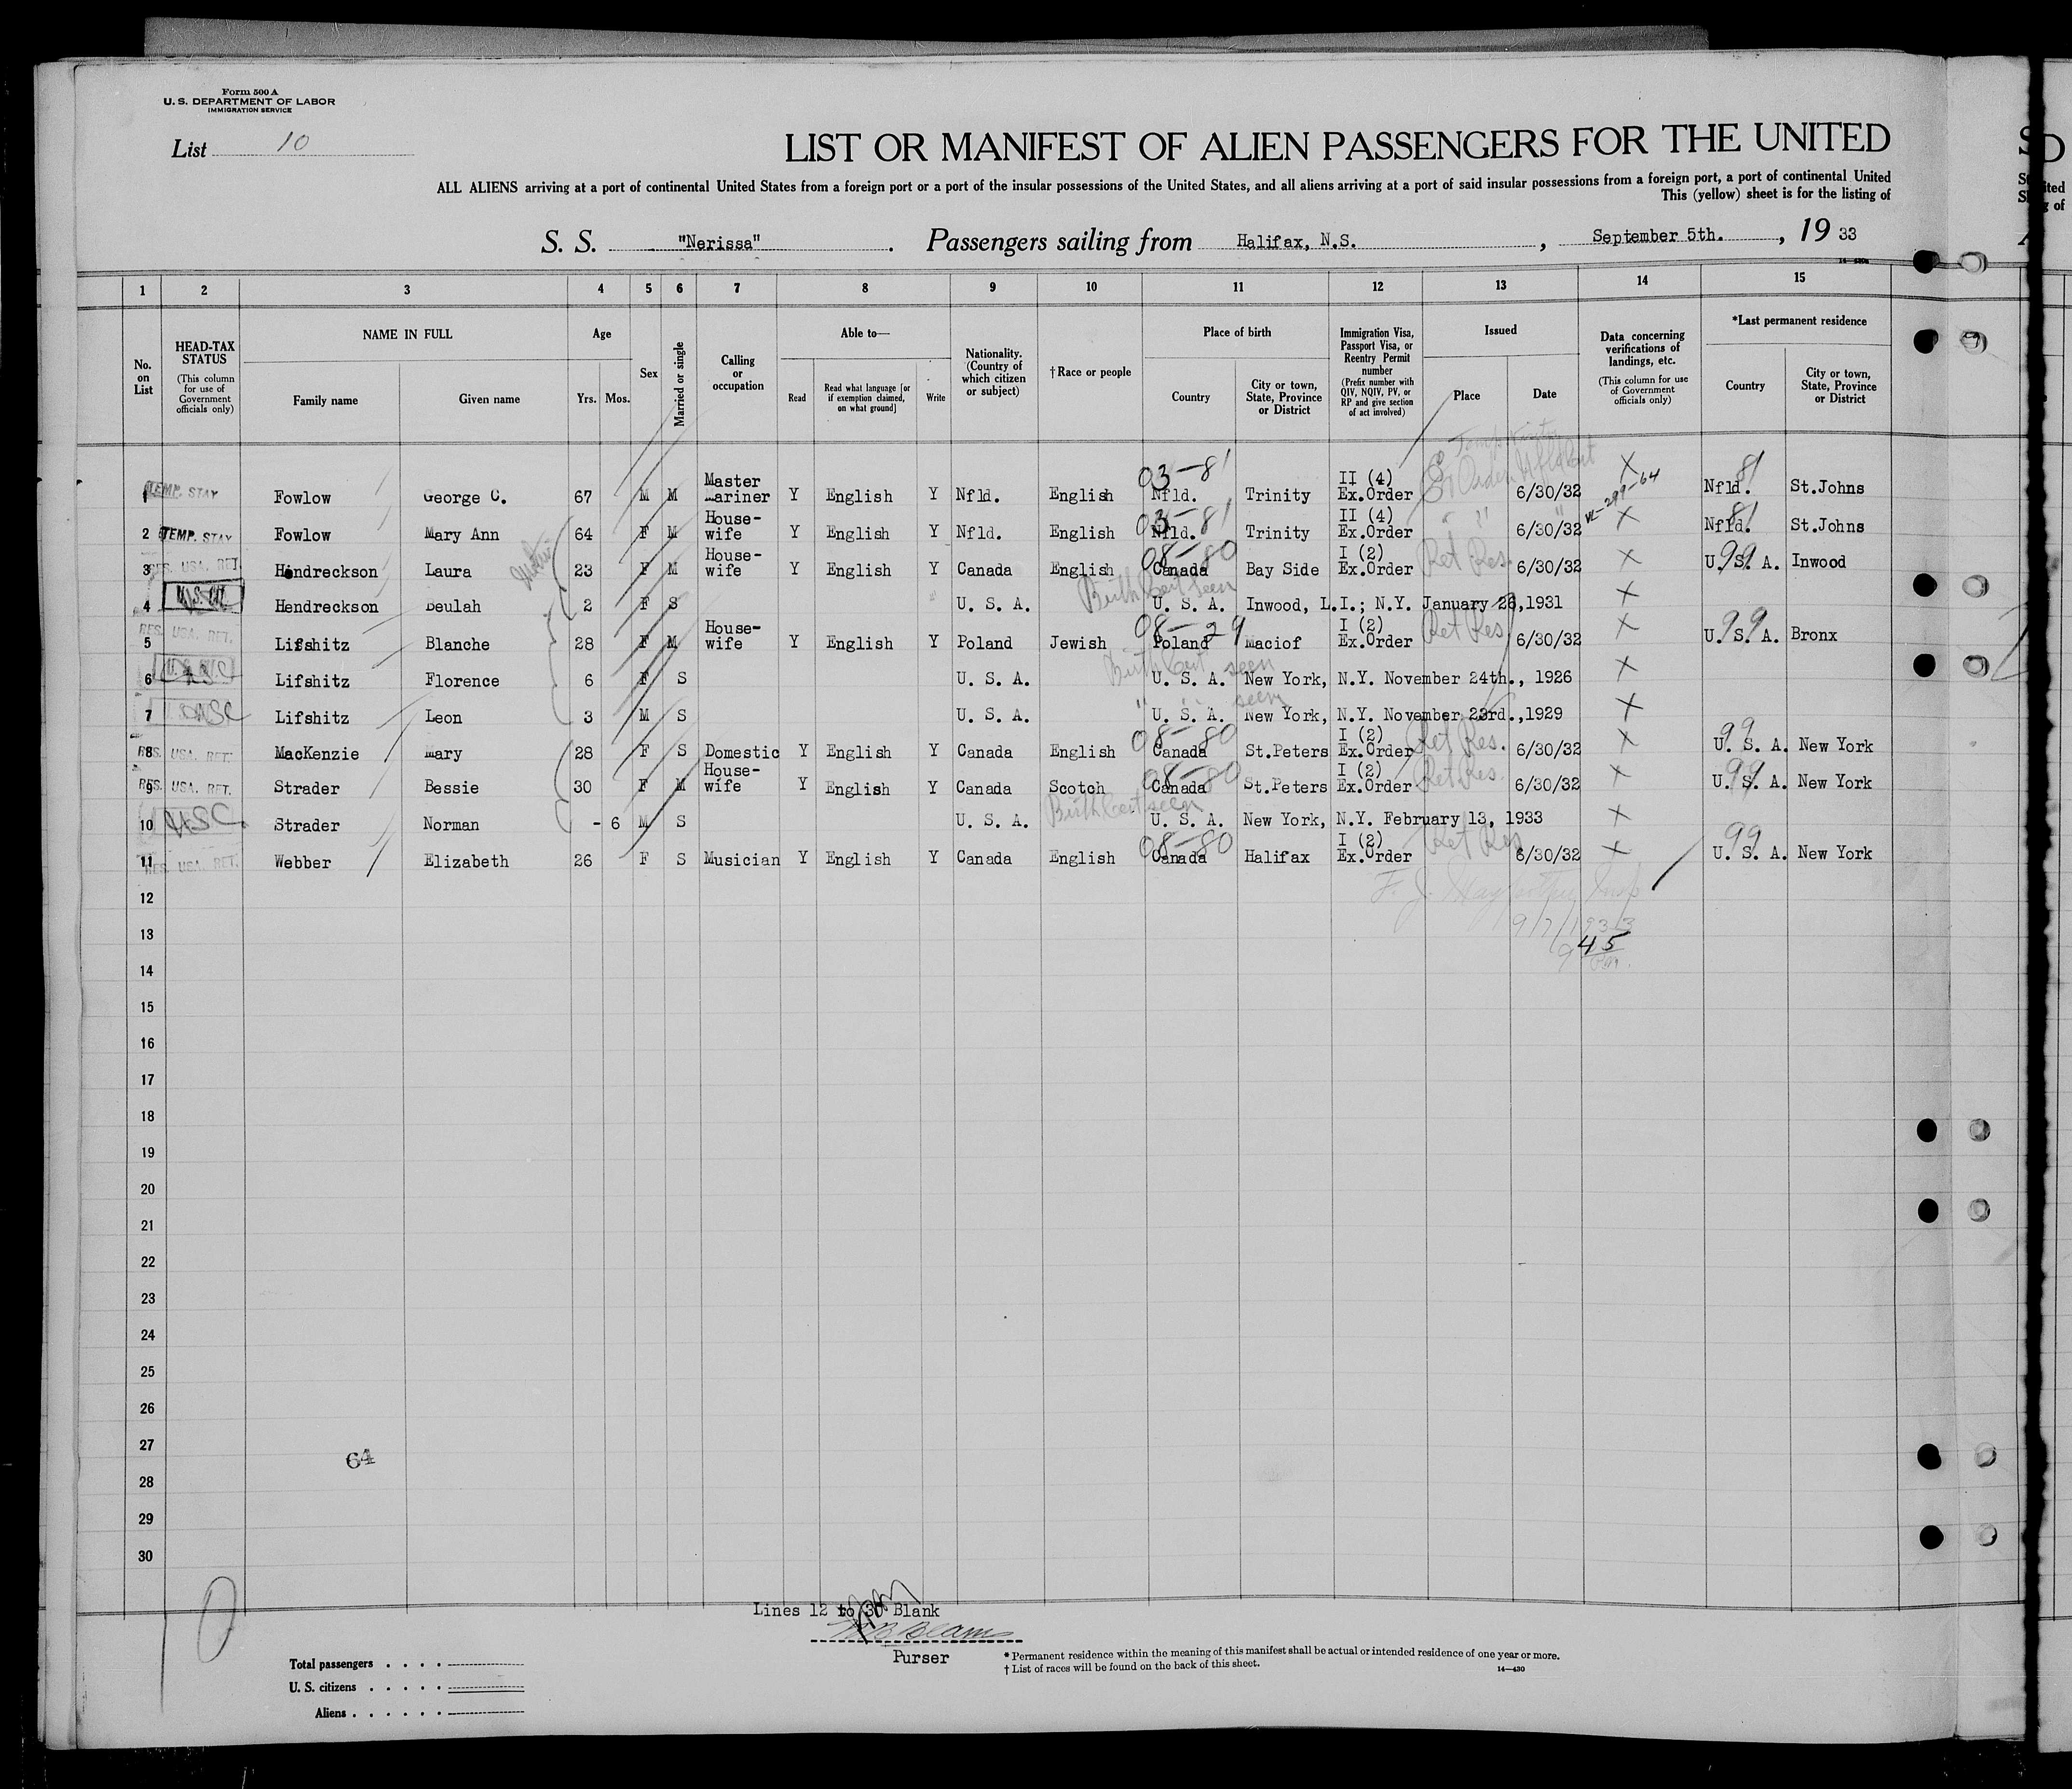 Form 500 A
U. S. DEPARTMENT OF LABOR
IMMIGRATION SERVICE
List 10
LIST OR MANIFEST OF ALIEN PASSENGERS FOR THE UNITED
ALL ALIENS arriving at a port of continental United States from a foreign port or a port of the insular possessions of the United States, and all aliens arriving at a port of said insular possessions from a foreign port, a port of continental United
This (yellow) sheet is for the listing of
S. S. "Nerissa". Passengers sailing from Halifax, N.S., September 5th., 19 33
1 2 3 4 5 6 7 8 9 10 11 12 13 14 15
No. on List
HEAD-TAX STATUS (This column for use of Government officials only)
NAME IN FULL
Family name Given name
Age
Yrs. Mos.
Sex
Married or single
Calling or occupation
Able to—
Read Read what language [or if exemption claimed, on what ground] Write
Nationality. (Country of which citizen or subject)
†Race or people
Place of birth
Country City or town, State, Province or District
Immigration Visa, Passport Visa, or Reentry Permit number (Prefix number with QIV, NQIV, PV, or RP and give section of act involved)
Issued
Place Date
Data concerning verifications of landings, etc. (This column for use of Government officials only)
*Last permanent residence
Country City or town, State, Province or District
1 TEMP. STAY Fowlow George C. 67 M M Master Mariner Y English Y Nfld. English 03-81 Nfld. Trinity II (4) Ex.Order 6/30/32 X 81 Nfld. St.Johns
2 TEMP. STAY Fowlow Mary Ann 64 F M House-wife Y English Y Nfld. English 03-81 Nfld. Trinity II (4) Ex.Order " 6/30/32 X 81 Nfld. St.Johns
3 RES. USA. RET. Hendreckson Laura 23 F M House-wife Y English Y Canada English 08-80 Canada Bay Side I (2) Ex.Order Ret Res. 6/30/32 X 99 U. S. A. Inwood
4 U.S. Cit. Hendreckson Beulah 2 F S U. S. A. Birth Cert seen U. S. A. Inwood, L.I.; N.Y. January 26,1931 X
5 RES. USA. RET. Lifshitz Blanche 28 F M House-wife Y English Y Poland Jewish 08-29 Poland Maciof I (2) Ex.Order Ret Res 6/30/32 X 99 U. S. A. Bronx
6 USC Lifshitz Florence 6 F S U. S. A. Birth Cert seen U. S. A. New York, N.Y. November 24th., 1926 X
7 USC Lifshitz Leon 3 M S U. S. A. " " seen U. S. A. New York, N.Y. November 23rd.,1929 X
8 RES. USA. RET. MacKenzie Mary 28 F S Domestic Y English Y Canada English 08-80 Canada St.Peters I (2) Ex.Order Ret Res. 6/30/32 X 99 U. S. A. New York
9 RES. USA. RET. Strader Bessie 30 F M House-wife Y English Y Canada Scotch 08-80 Canada St.Peters I (2) Ex.Order Ret Res. 6/30/32 X 99 U. S. A. New York
10 USC Strader Norman - 6 M S U. S. A. Birth Cert seen U. S. A. New York, N.Y. February 13, 1933 X
11 RES. USA. RET. Webber Elizabeth 26 F S Musician Y English Y Canada English 08-80 Canada Halifax I (2) Ex.Order Ret Res 6/30/32 X 99 U. S. A. New York
12
13 9/7/1933
14 9 45
15
16
17
18
19
20
21
22
23
24
25
26
27 64
28
29
30
Lines 12 to 30 Blank
Purser
Total passengers
U. S. citizens
Aliens
* Permanent residence within the meaning of this manifest shall be actual or intended residence of one year or more.
† List of races will be found on the back of this sheet.
14—430